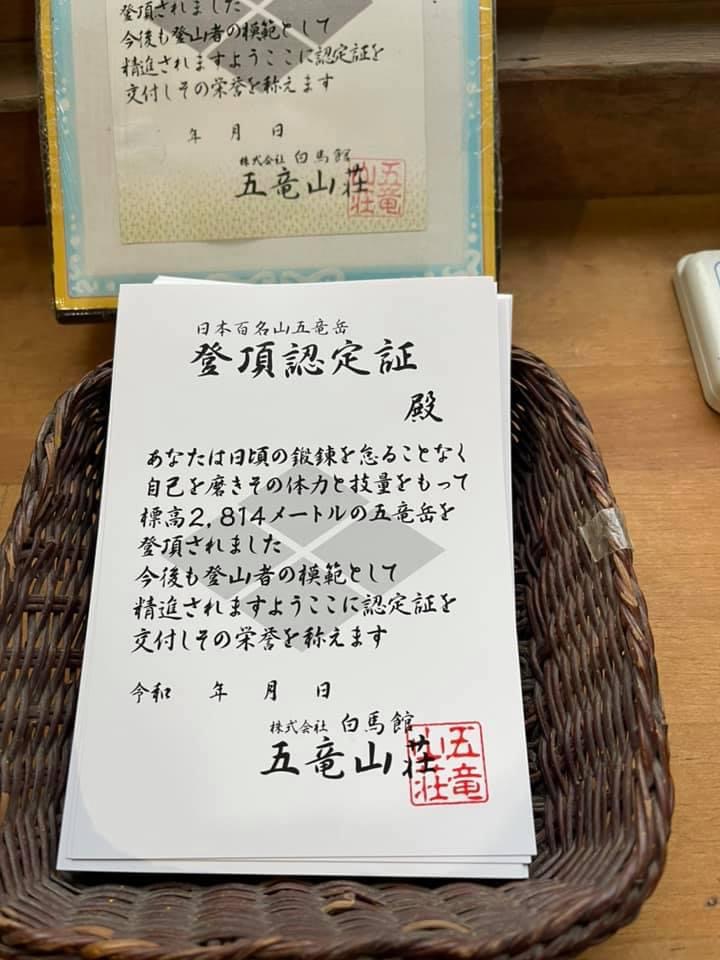 登頂されました
今後も登山者の模範として
精進されますようここに認定証を
交付しその栄誉を称えます
年 月 日
株式会社 白馬館
五竜山荘
五竜
山荘
日本百名山五竜岳
登頂認定証
殿
あなたは日頃の鍛錬を怠ることなく
自己を磨きその体力と技量をもって
標高2,814メートルの五竜岳を
登頂されました
今後も登山者の模範として
精進されますようここに認定証を
交付しその栄誉を称えます
令和 年 月 日
株式会社 白馬館
五竜山荘
五竜
山荘